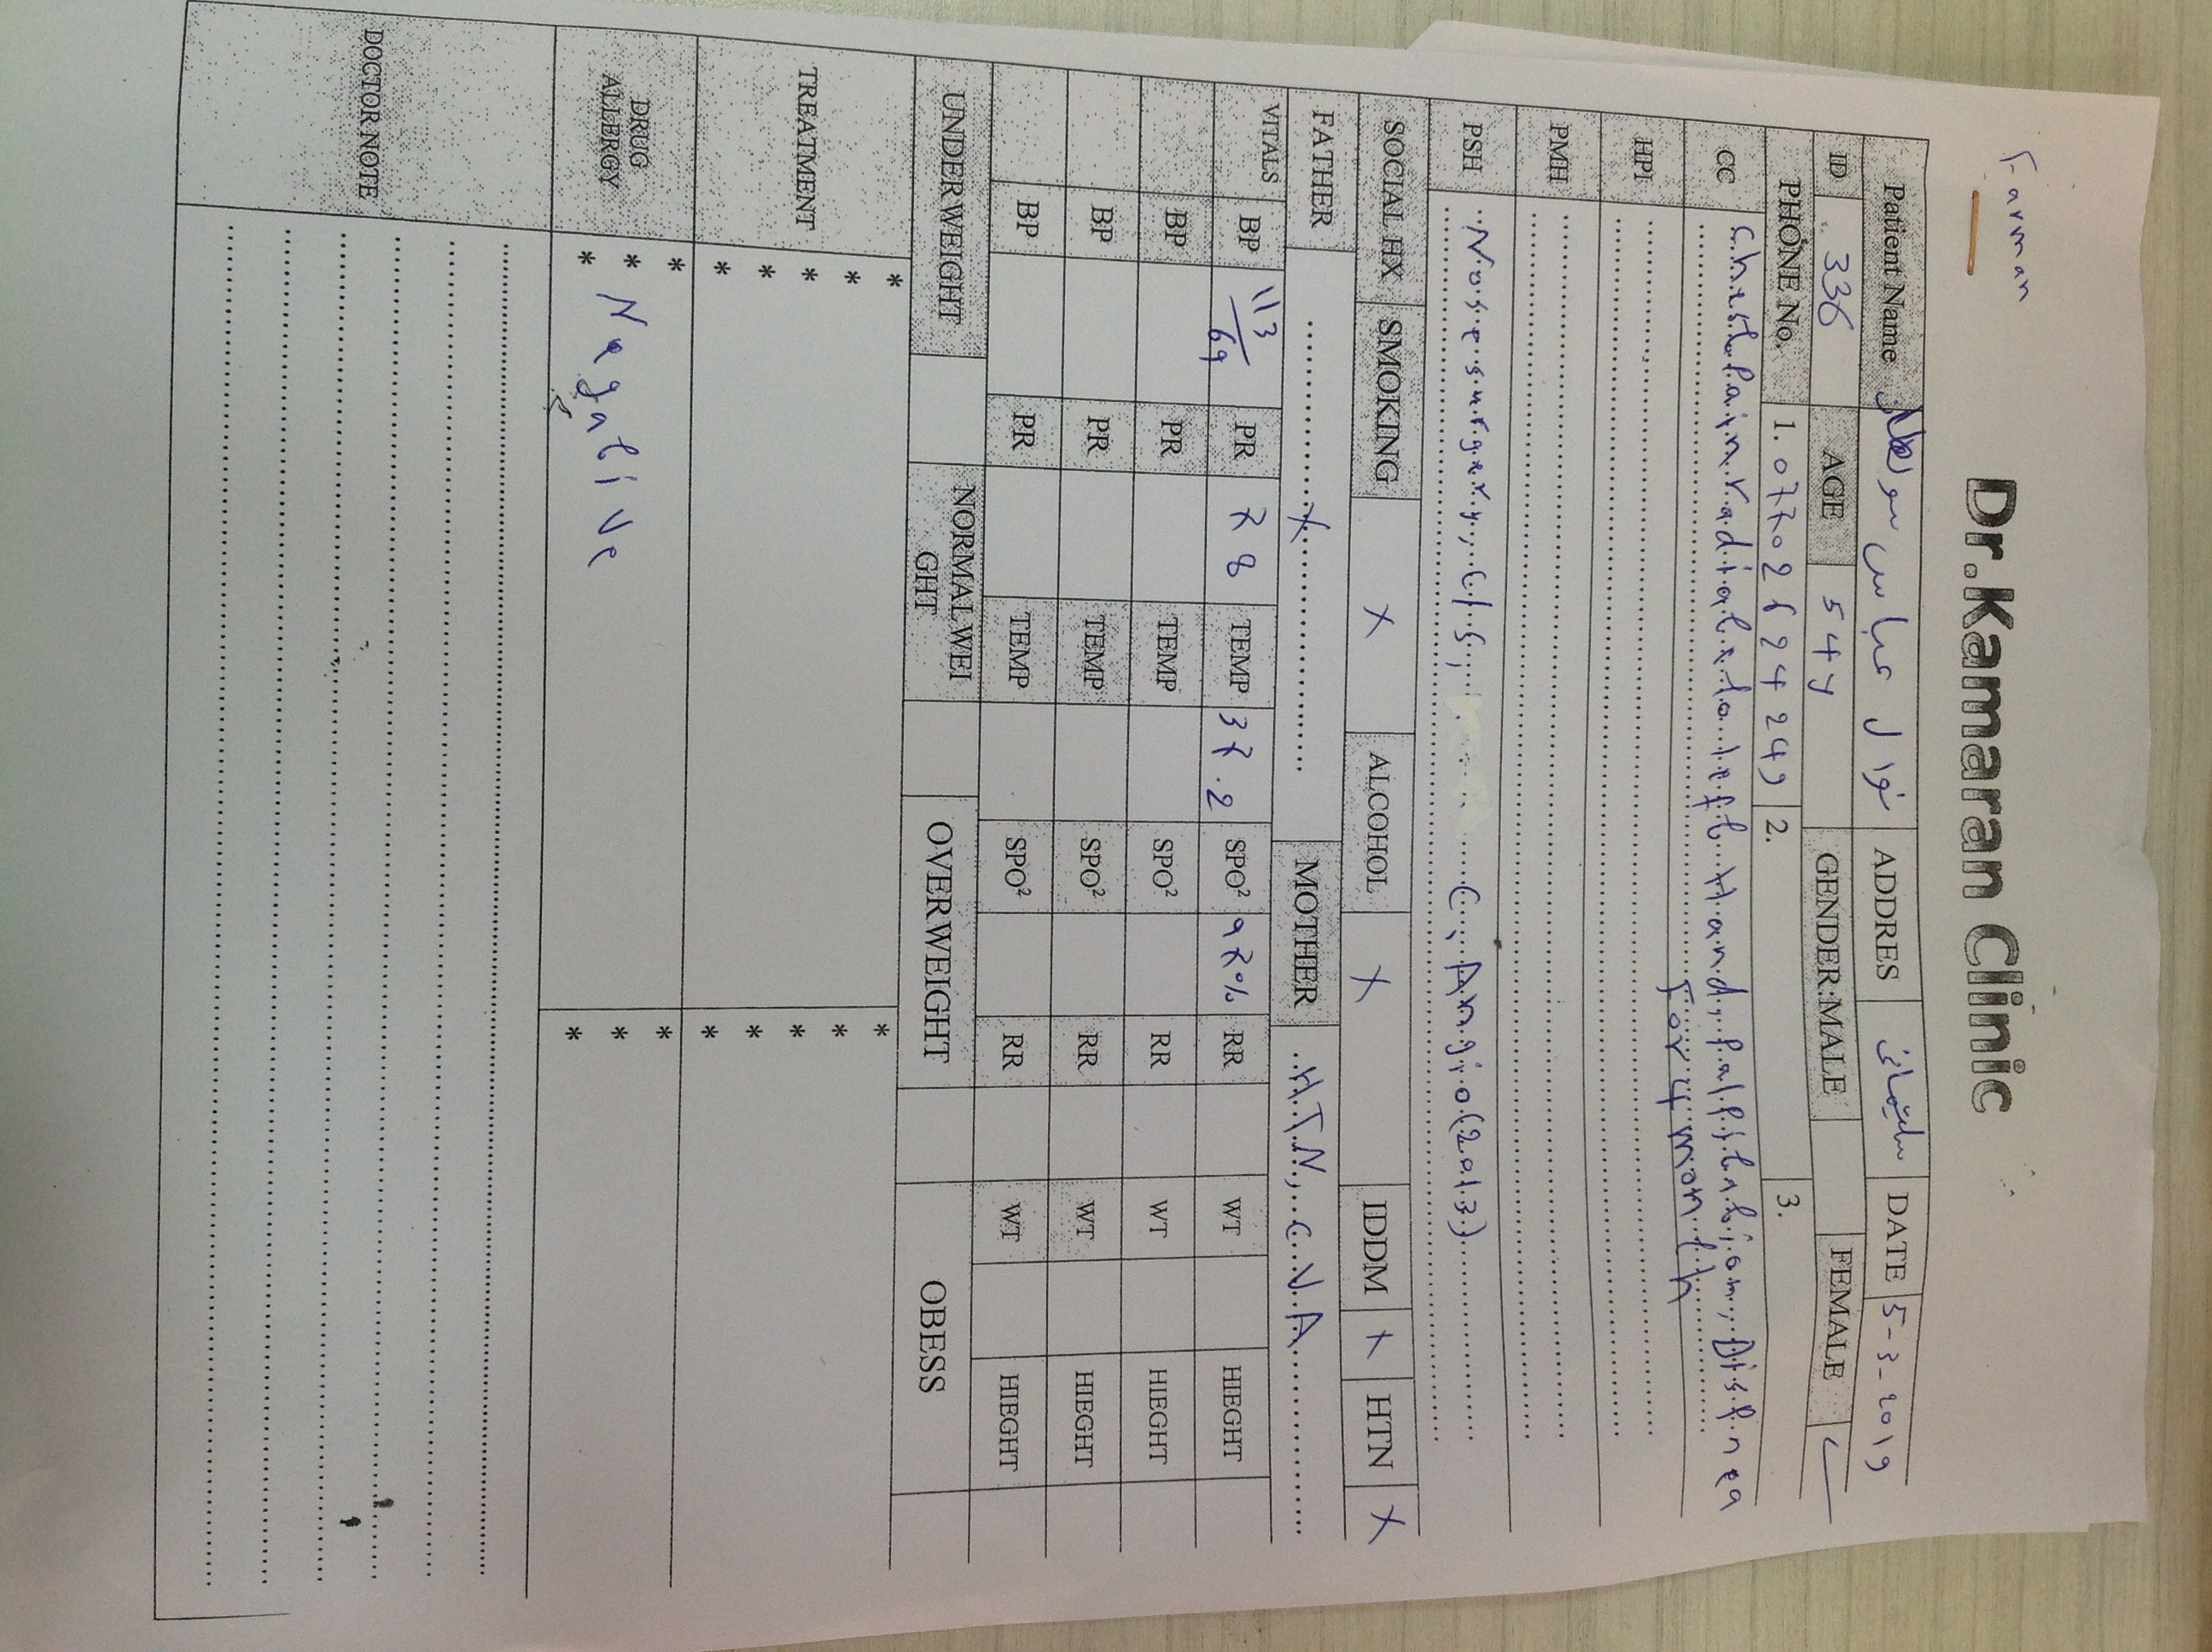 Farman
Dr.Kamaran Clinic
Patient Name نوال عباس ADDRES سلێمانی DATE 5-3-2019
ID 336 AGE 54y GENDER:MALE FEMALE ✓
PHONE No. 1. 2. 3.
CC Chest Pain radiated to left Hand, Palpitation, Dispnea
For 4 month
HPI
PMH
PSH Nose surgery, C/S, C, Angio (2013)
SOCIAL HX SMOKING X ALCOHOL X IDDM X HTN X
FATHER X MOTHER HTN, C.V.A
VITALS BP 113/69 PR 78 TEMP 37.2 SPO² 97% RR WT HIEGHT
BP PR TEMP SPO² RR WT HIEGHT
BP PR TEMP SPO² RR WT HIEGHT
BP PR TEMP SPO² RR WT HIEGHT
UNDERWEIGHT NORMAL WEI
GHT OVERWEIGHT OBESS
TREATMENT * *
* *
* *
* *
* *
DRUG
ALLERGY * *
* Negative *
* *
DOCTOR NOTE